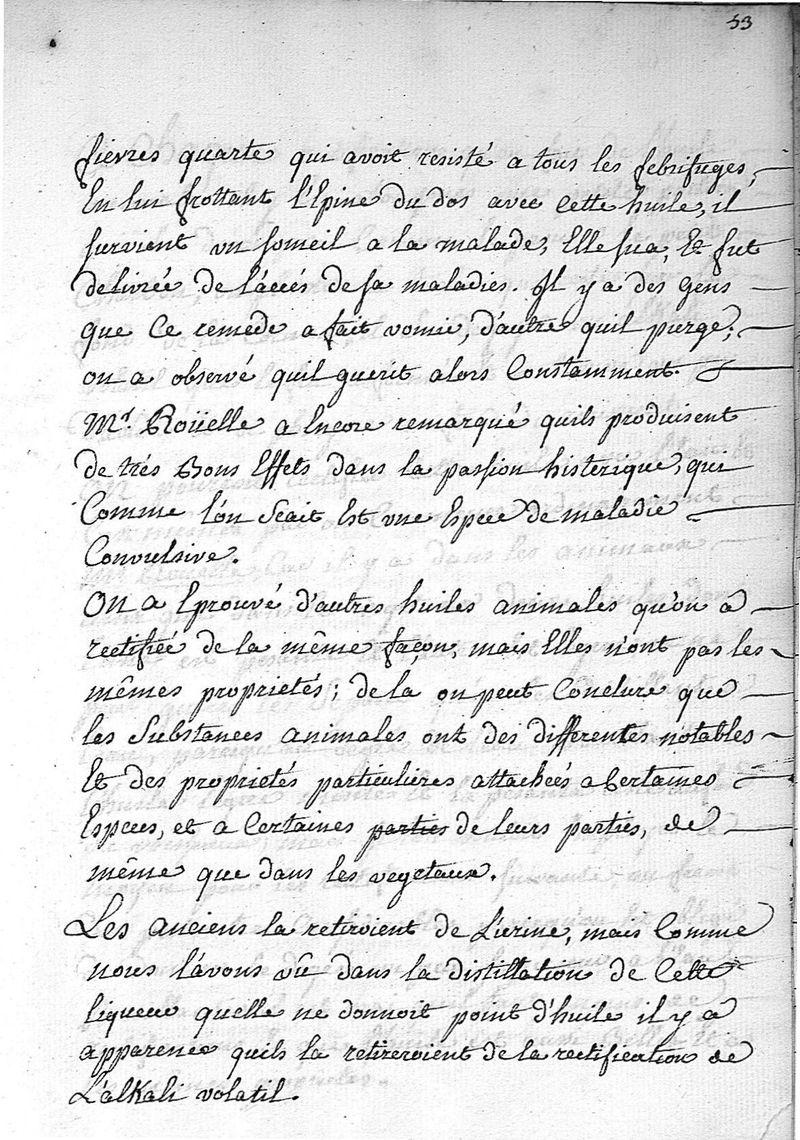 53
fievres quarte qui avoit resisté a tous les febrifuges,
En lui frottant l'Epine du dos avec cette huile, il
survient un someil a la malade, Elle sua, Et fut
delivrée de l'accés de sa maladies. Il y a des gens
que Ce remede a fait vomir, d'autre quil purge;
on a observé quil guerit alors Constamment.
Mr. Roüelle a Encore remarqué quils produisent
de trés Bons Effets dans la passion histerique, qui
Comme l'on Scait Est une Espece de maladie
Convulsive.
On a Eprouvé d'autres huiles animales qu'on a
rectifiée de la même façon, mais Elles n'ont pas les
mêmes proprietés; de la on peut Conclure que
les Substances animales ont des differentes notables
Et des proprietés particulières attachées a Certaines
Especes, et a Certaines parties de leurs parties, de
même que dans les vegetaux.
Les anciens la retiroient de L'urine, mais Comme
nous l'avons vû dans la distillation de Cette
liqueur quelle ne donnoit point d'huile il y a
apparence quils la retireroient de la rectification de
L'alKali volatil.